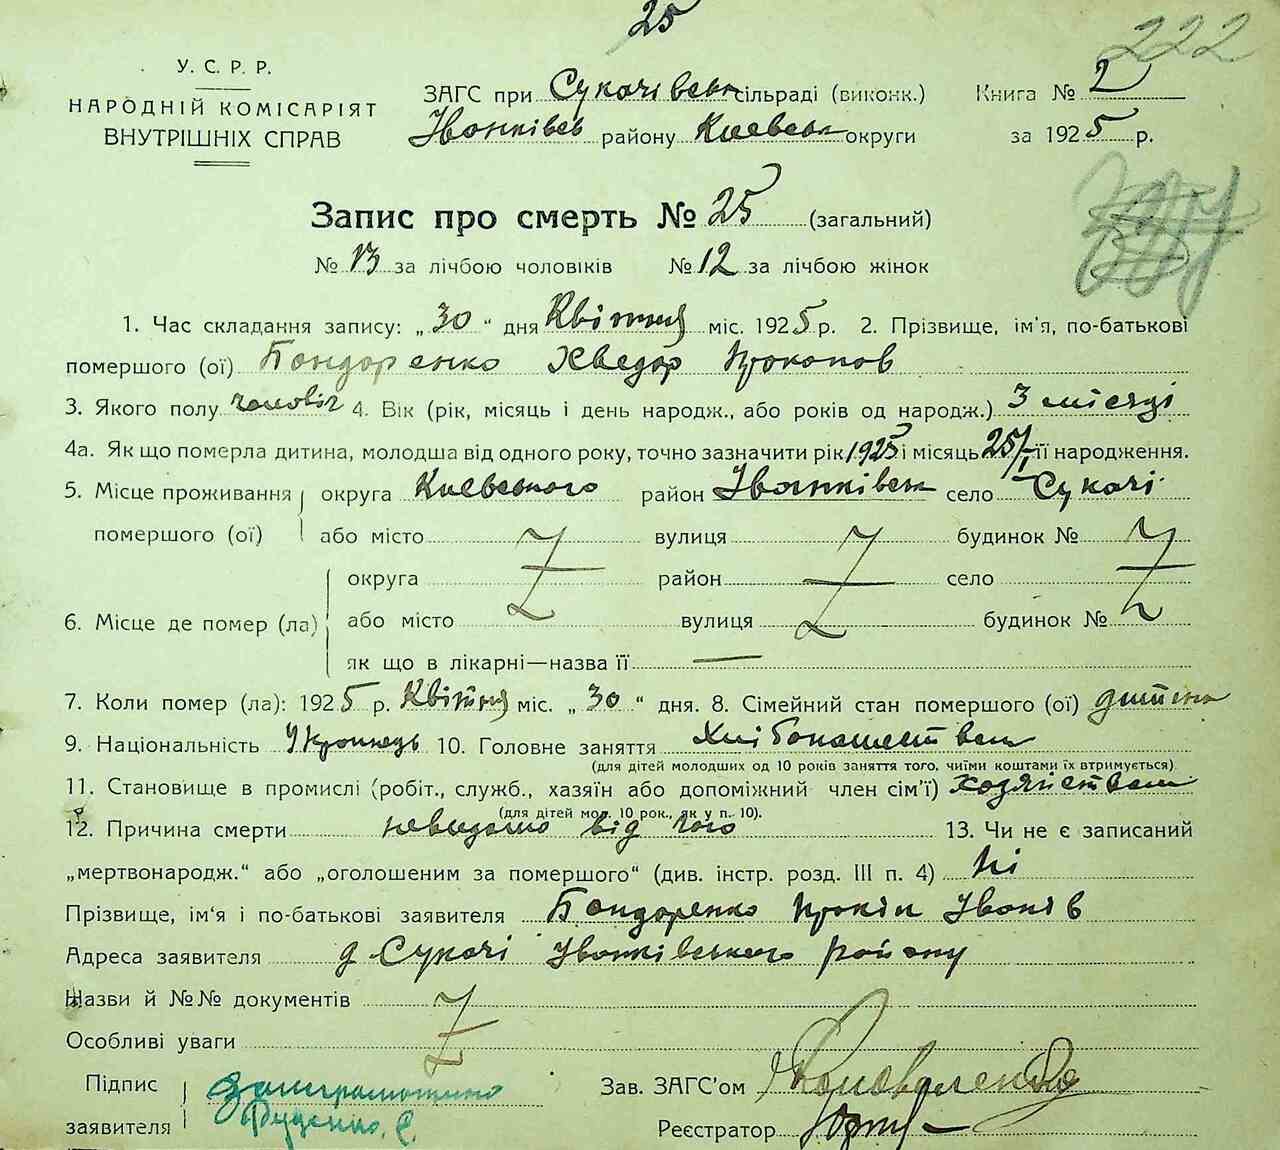 25
222
У. С. Р. Р.
НАРОДНІЙ КОМІСАРІЯТ
ВНУТРІШНІХ СПРАВ
ЗАГС при Сукачівськ сільраді (виконк.)
Книга № 2
Іванківсь району Киевськ округи
за 1925 р.
Запис про смерть № 25 (загальний)
№ 13 за лічбою чоловіків № 12 за лічбою жінок
1. Час складання запису: „30“ дня Квітня міс. 1925 р. 2. Прізвище, ім'я, по-батькові
помершого (ої) Бондаренко Хведор Прокопов
3. Якого полу чоловіч 4. Вік (рік, місяць і день народж., або років од народж.) 3 місяці
4а. Як що померла дитина, молодша від одного року, точно зазначити рік 1925 і місяць 25/I її народження.
5. Місце проживання округа Киевського район Іванківськ село Сукачі
помершого (ої) або місто вулиця будинок №
округа район село
6. Місце де помер (ла) або місто вулиця будинок №
як що в лікарні—назва її —
7. Коли помер (ла): 1925 р. Квітня міс. „30“ дня. 8. Сімейний стан помершого (ої) дитина
9. Національність Українець 10. Головне заняття
(для дітей молодших од 10 років заняття того, чиїми коштами їх втримується)
11. Становище в промислі (робіт., служб., хазяїн або допоміжний член сім'ї)
(для дітей мол. 10 рок., як у п. 10).
12. Причина смерти невидомо від чого 13. Чи не є записаний
„мертвонародж.“ або „оголошеним за помершого“ (див. інстр. розд. III п. 4) Ні
Прізвище, ім'я і по-батькові заявителя Бондаренко Прокіп Іванів
Адреса заявителя д Сукачі Іванківського району
Назви й №№ документів
Особливі уваги
Підпис
заявителя
Зав. ЗАГС'ом Коноваленко
Реєстратор